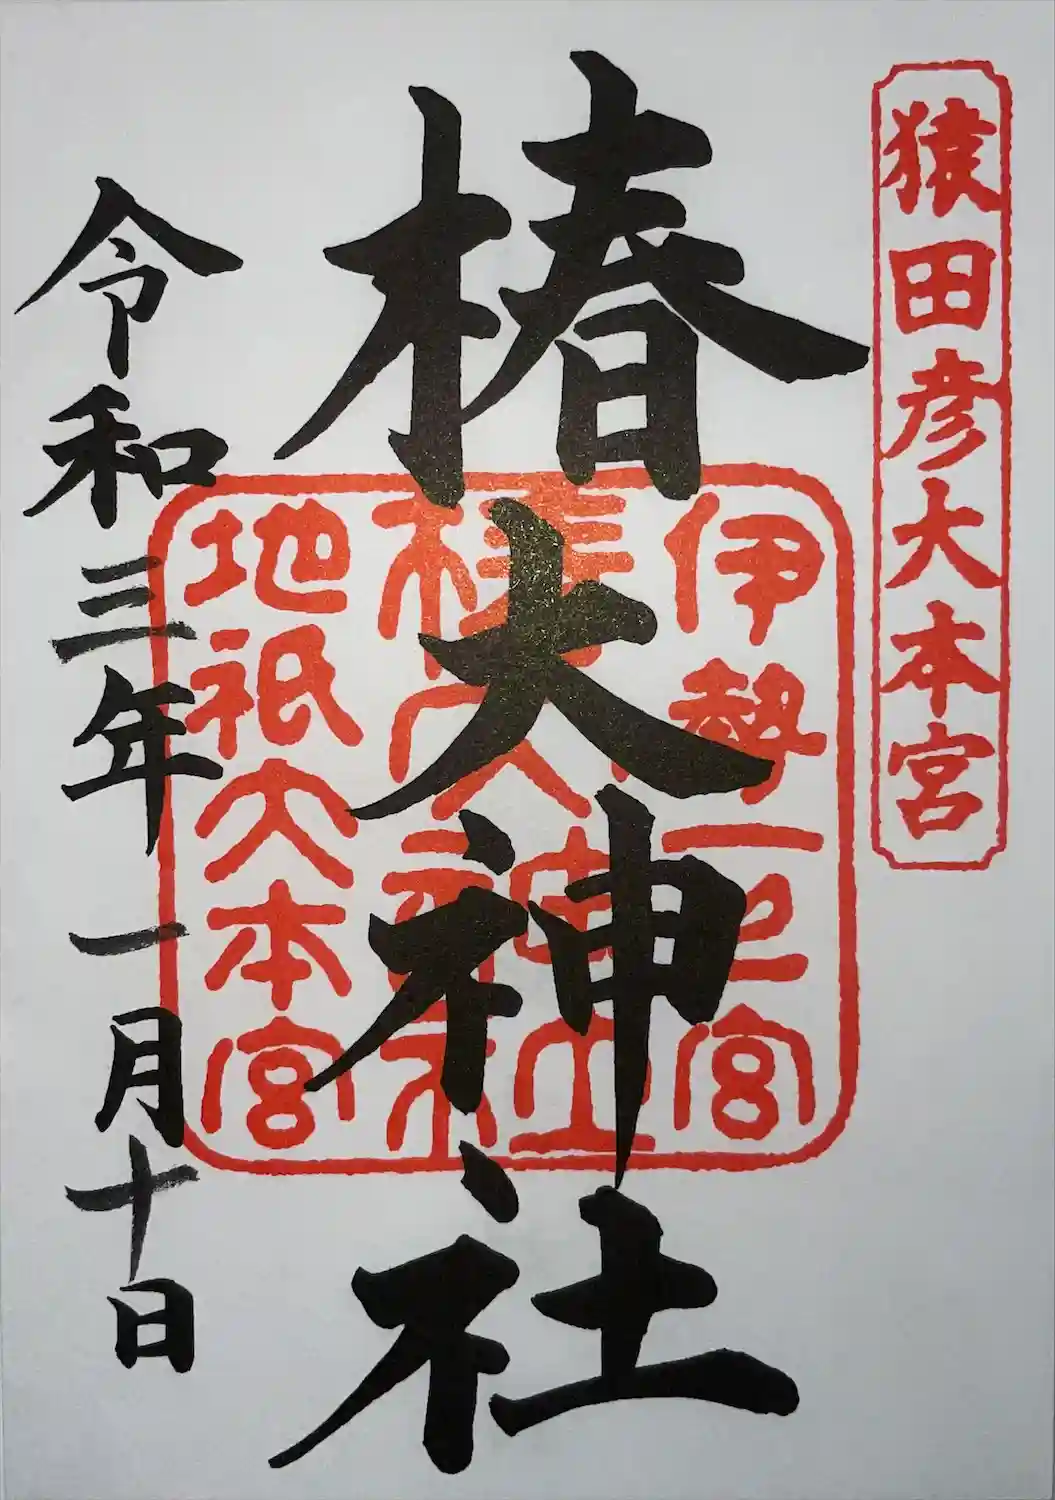 猿田彦大本宮
椿大神社
伊勢一之宮
椿大神社
地祇大本宮
令和三年一月十日